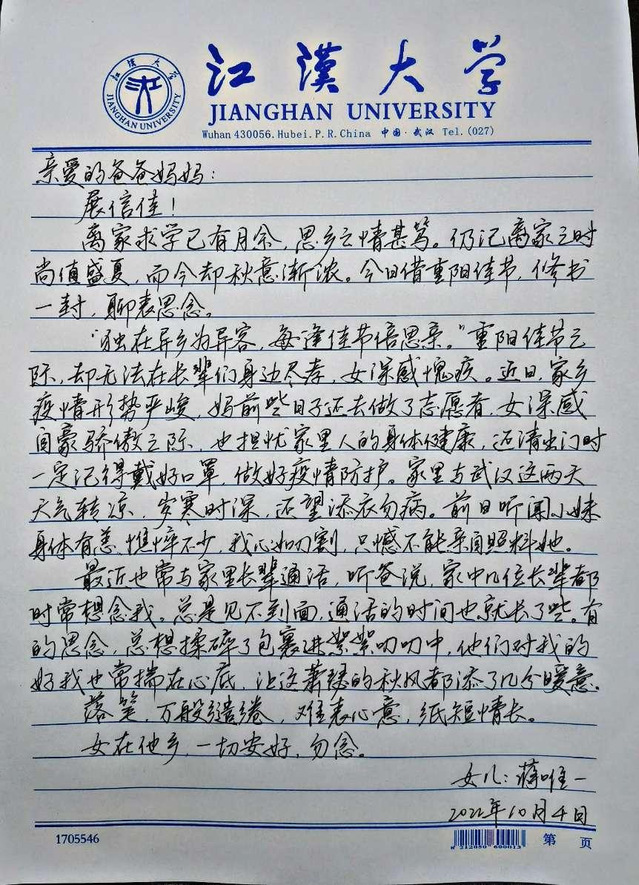 江漢大学
JIANGHAN UNIVERSITY
Wuhan 430056. Hubei. P. R. China 中国·武汉 Tel. (027)
江漢大学
JIANGHAN UNIVERSITY
亲爱的爸爸妈妈:
展信佳!
离家求学已有月余,思乡之情甚笃。仍记离家之时
尚值盛夏,而今却秋意渐浓。今日借重阳佳节,修书
一封,聊表思念。
“独在异乡为异客,每逢佳节倍思亲。”重阳佳节之
际,却无法在长辈们身边尽孝,女深感愧疚。近日,家乡
疫情形势严峻,妈前些日子还去做了志愿者,女深感
自豪骄傲之际,也担忧家里人的身体健康,还请出门时
一定记得戴好口罩,做好疫情防护。家里与武汉这两天
天气转凉,岁寒时深,还望添衣勿病。前日听闻小妹
身体有恙,憔悴不少,我心如刀割,只憾不能亲自照料她。
最近也常与家里长辈通话,听爸说,家中几位长辈都
时常想念我。总是见不到面,通话的时间也就长了些。有
的思念,总想揉碎了包裹进絮絮叨叨中,他们对我的
好我也常揣在心底,让这萧瑟的秋风都添了几分暖意。
落笔,万般缱绻,难表心意,纸短情长。
女在他乡,一切安好,勿念。
女儿:蒋唯一
2022年10月4日
1705546
第 页